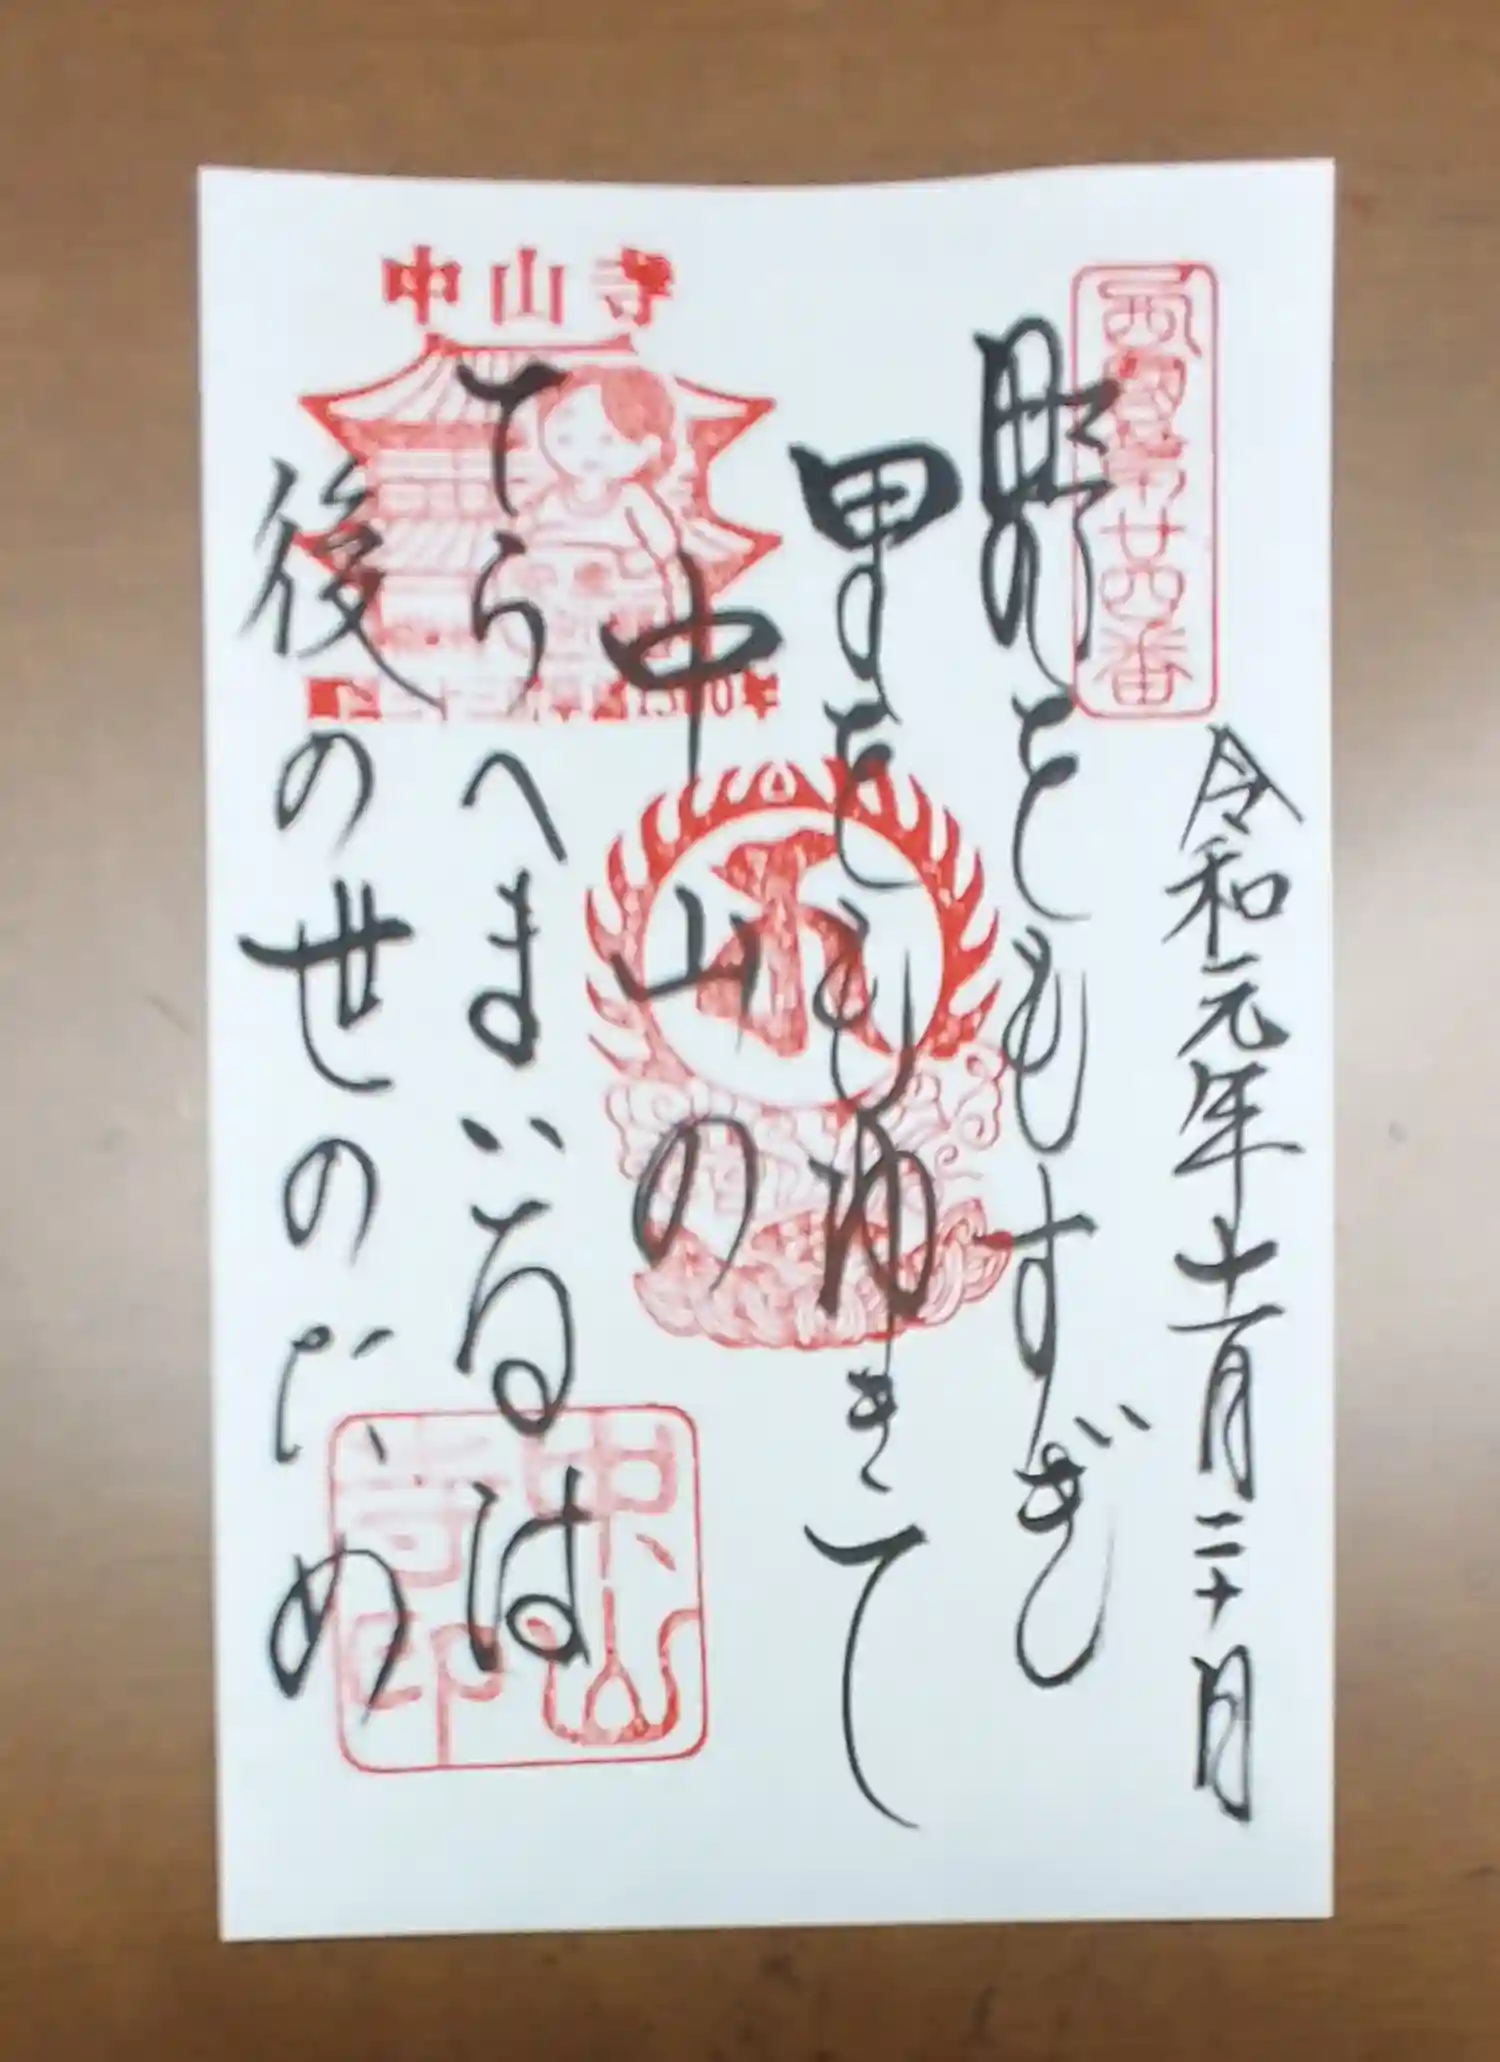 西國第廿四番
令和元年十一月二十日
野をもすぎ
里をもゆきて
中山の
てらへまいるは
後のせのため
中山寺
1300年
中山寺印